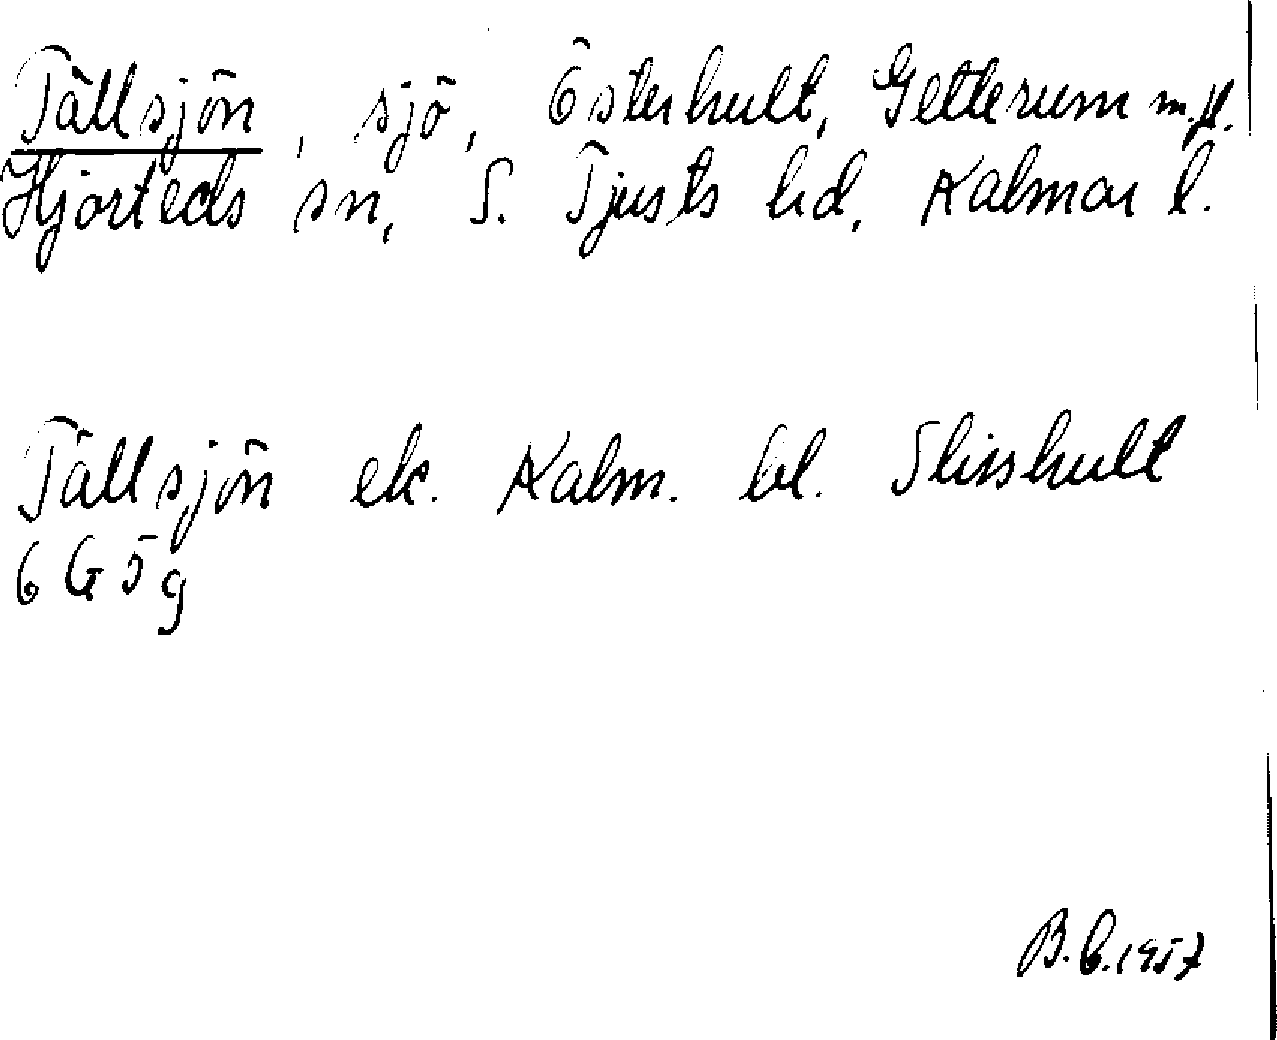 Tällsjön, sjö, Österhult, Getterum m.fl.
Hjorteds sn, S. Tjusts hd, Kalmar l.
Tällsjön ek. Kalm. bl. Slisshult
6 G 5 g
B.C. 1957